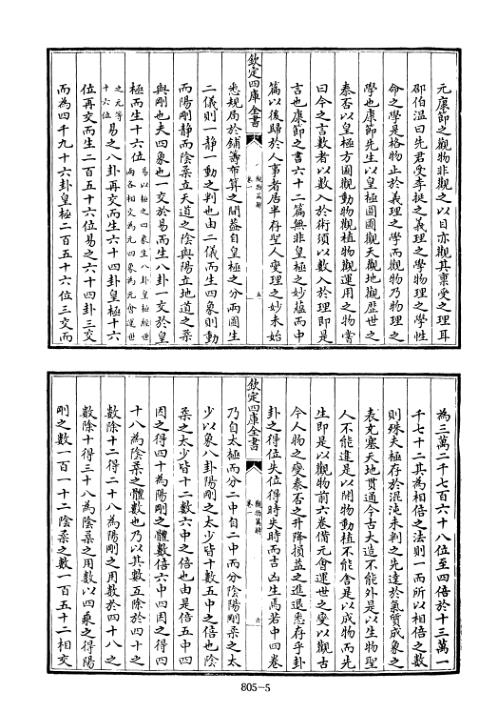 元康節之觀物非觀之以目亦觀其稟受之理耳
邵伯溫曰先君受李挺之義理之學物理之學性
命之學莫格物止於義理之學而觀物乃物理之
學也康節先生以皇極圓圖觀天觀地觀歷世之
泰否以皇極方圖觀動物觀植物觀運用之物嘗
曰今之言數者以數入於術須以數入於理即是
言也康節之書六十二篇無非皇極之妙蘊而中
篇以後歸於人事者居半存聖人變理之妙未始
悉規局於鋪籌布算之間蓋自皇極之分兩圖生
二儀則一靜一動之判也由二儀而生四象則動
而陽剛靜而陰柔立天道之陰與陽立地道之柔
與剛也夫四象也一交於易而生八卦一交於皇
極而生十六位易以極之四象生八卦皇極經世兩各相交為元四象為元會運世
之元等十六位易之八卦再交而生六十四卦皇極十六
位再交而生二百五十六位易之六十四卦三交
而為四千九十六卦皇極二百五十六位三交而
欽定四庫全書
觀物篇解
卷一
五
為三萬二千七百六十八位至四倍於十三萬一
千七十二其為相倍之法則一而所以相倍之數
則殊夫極存於混沌未判之先達於氣質成象之
表充塞天地貫通今古大造不能外是以生物聖
人不能違是以開物動植不能舍是以成物而先
生即是以觀物前六卷備元會運世之變以觀古
今人物之變泰否之升降損益之進退悉存乎卦
卦之得位失位得時失時而吉凶生焉若中四卷
乃自太極而分二中自二中而分陰陽剛柔之太
少以象八卦陽剛之太少皆十數五中之倍也陰
柔之太少皆十二數六中之倍也由是倍五中四
因之得四十為陽剛之體數倍六中四因之得四
十八為陰柔之體數也乃以其數互除於四十之
數除十二得二十八為陽剛之用數於四十八之
數除十得三十八為陰柔之用數以四乘之得陽
剛之數一百一十二陰柔之數一百五十二相交
欽定四庫全書
觀物篇解
卷一
六
805-5